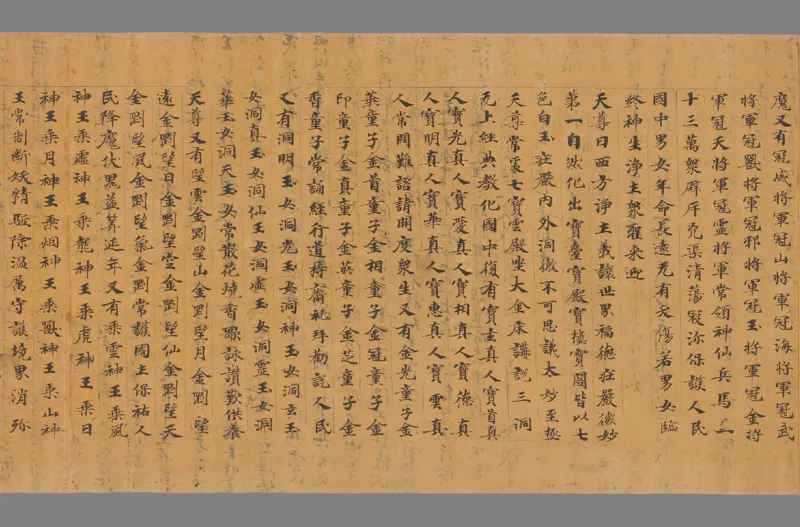 魔又有冠威將軍冠山將軍冠海將軍冠武
將軍冠獸將軍冠邪將軍冠玉將軍冠金將
軍冠天將軍冠靈將軍常領神仙兵馬二
十三萬衆辟斥兇渠清蕩寇沴保護人民
國中男女年命長遠无有夭傷若男女臨
終神生淨土衆聖来迎
天尊曰西方淨土義讓世界福德莊嚴微妙
第一自然化出寶臺寶殿寶樓寶閣皆以七
色白玉莊嚴內外洞徹不可思議大妙至極
天尊常處七寶雲殿坐大金床講說三洞
无上經典教化國中復有寶玄真人寶首真
人寶光真人寶愛真人寶相真人寶德真
人寶明真人寶華真人寶惠真人寶雲真
人常問難諮請開度衆生又有金光童子金
葉童子金首童子金相童子金冠童子金
印童子金真童子金英童子金芝童子金
香童子常誦經行道持齋礼拜勸說人民
又有洞明玉女洞光玉女洞神玉女洞玄玉
女洞真玉女洞仙玉女洞虛玉女洞靈玉女洞
華玉女洞天玉女常散花燒香歌詠讚歎供養
天尊又有望雲金剛望山金剛望月金剛望
遠金剛望日金剛望空金剛望仙金剛望天
金剛望風金剛望氣金剛常護國土保祐人
民降魔伏鬼益筭延年又有乘雲神王乘風
神王乘虛神王乘龍神王乘虎神王乘日
神王乘月神王乘烟神王乘獸神王乘山神
王常制斷妖精駈除温厲守護境界消弥